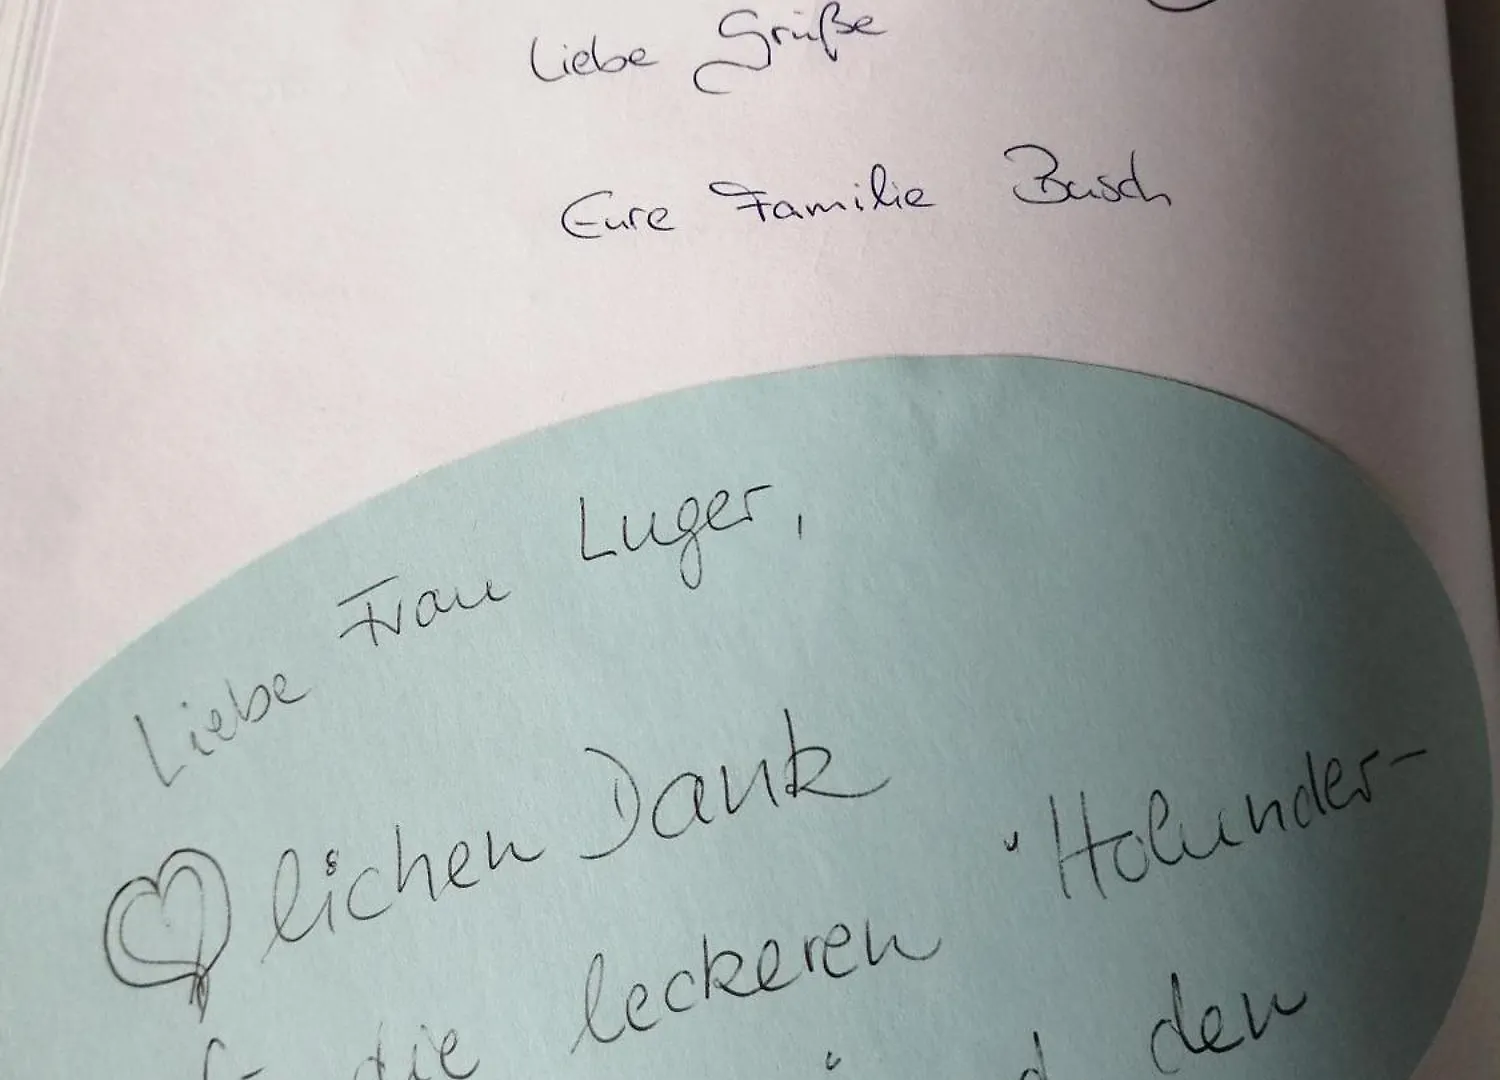 Liebe Grüße
Eure Familie Busch
Liebe Frau Luger,
lichen Dank
die leckeren "Holunder-
den